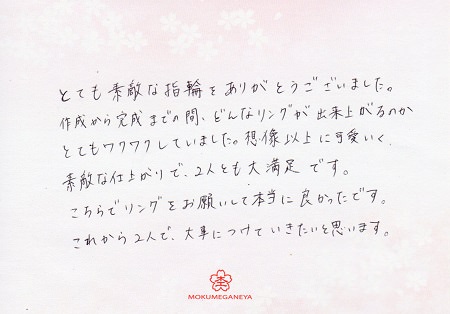 とても素敵な指輪をありがとうございました。
作成から完成までの間、どんなリングが出来上がるのか
とてもワクワクしていました。想像以上に可愛いく、
素敵な仕上がりで、2人とも大満足です。
こちらでリングをお願いして本当に良かったです。
これから2人で、大事につけていきたいと思います。
MOKUMEGANEYA